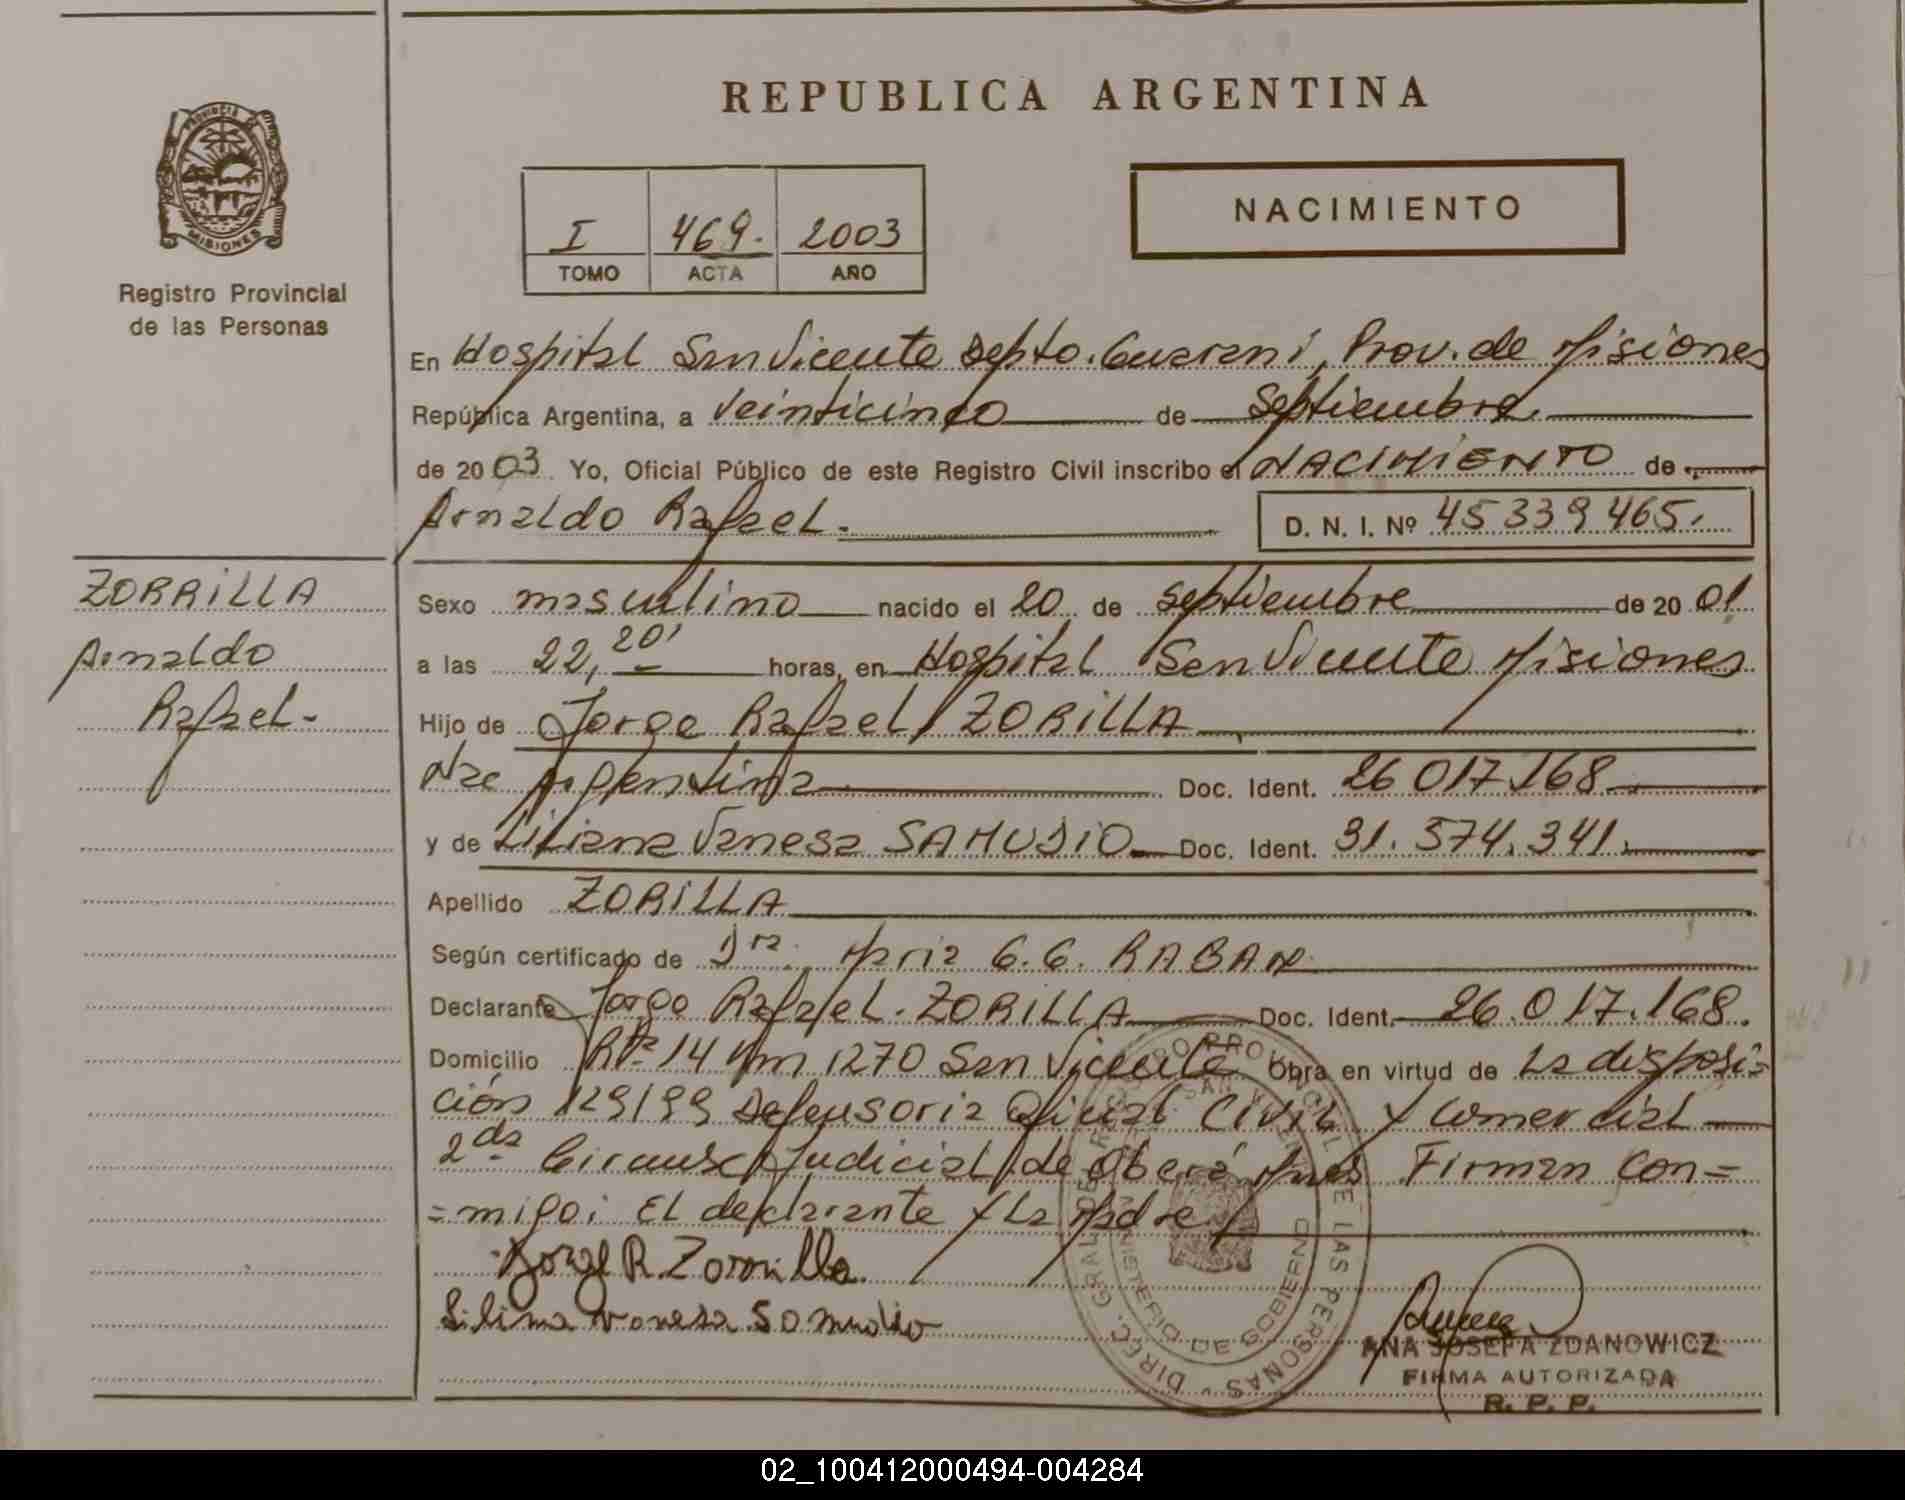 REPUBLICA ARGENTINA
PROVINCIA DE
MISIONES
Registro Provincial
de las Personas
I 469. 2003
TOMO ACTA AÑO
NACIMIENTO
En Hospital San Vicente Depto. Guarani, Prov. de Misiones
República Argentina, a Veinticinco de Septiembre.
de 2003. Yo, Oficial Público de este Registro Civil inscribo el NACIMIENTO de
Arnaldo Rafael.
D. N. I. Nº 45 339 465.
ZORRILLA
Arnaldo
Rafael-
Sexo masculino nacido el 20 de Septiembre de 2001.
a las 22,20' horas, en Hospital San Vicente Misiones
Hijo de Jorge Rafael ZORILLA
Nac Argentina Doc. Ident. 26 017.168.
y de Liliana Vanesa SAMUDIO Doc. Ident. 31.574.341.
Apellido ZORILLA
Según certificado de Dra. Maria G.G. RABAN
Declarante Jorge Rafael. ZORILLA Doc. Ident. 26.017.168.
Domicilio Rta 14 Km 1270 San Vicente Obra en virtud de La disposi=
ción 129/99 Defensoria Oficial Civil y Comercial
2da Circunsc. Judicial de Oberá Mnes Firman Con=
=migo: El declarante y La Madre
Jorge R. Zorrilla.
Liliana Vanesa Samudio
DIREC. GRAL. DE REGISTRO PROVINCIAL DE LAS PERSONAS
MINISTERIO DE GOBIERNO
SAN VICENTE
ANA JOSEFA ZDANOWICZ
FIRMA AUTORIZADA
R. P. P.
02_100412000494-004284